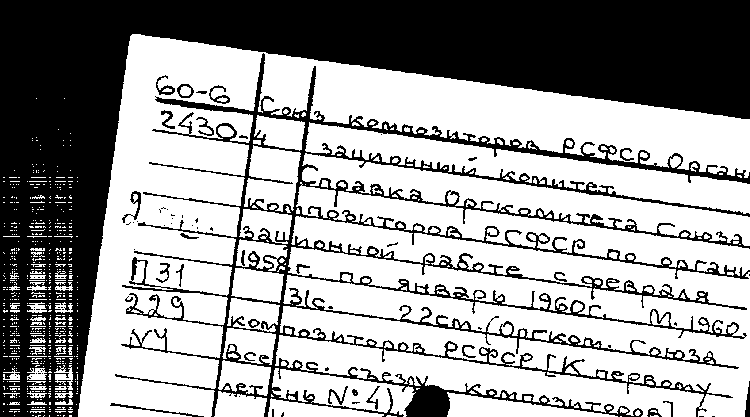 60-6 Союз композиторов РСФСР. Органи
2430-4 зационный комитет.
Справка Оргкомитета Союза
композиторов РСФСР по органи
зационной работе с февраля
1958г. по январь 1960г. М., 1960.
П31 31с. 22см. (Оргком. Союза
229 композиторов РСФСР [К первому
№4 Всерос. съезду композиторов]
летень №4)